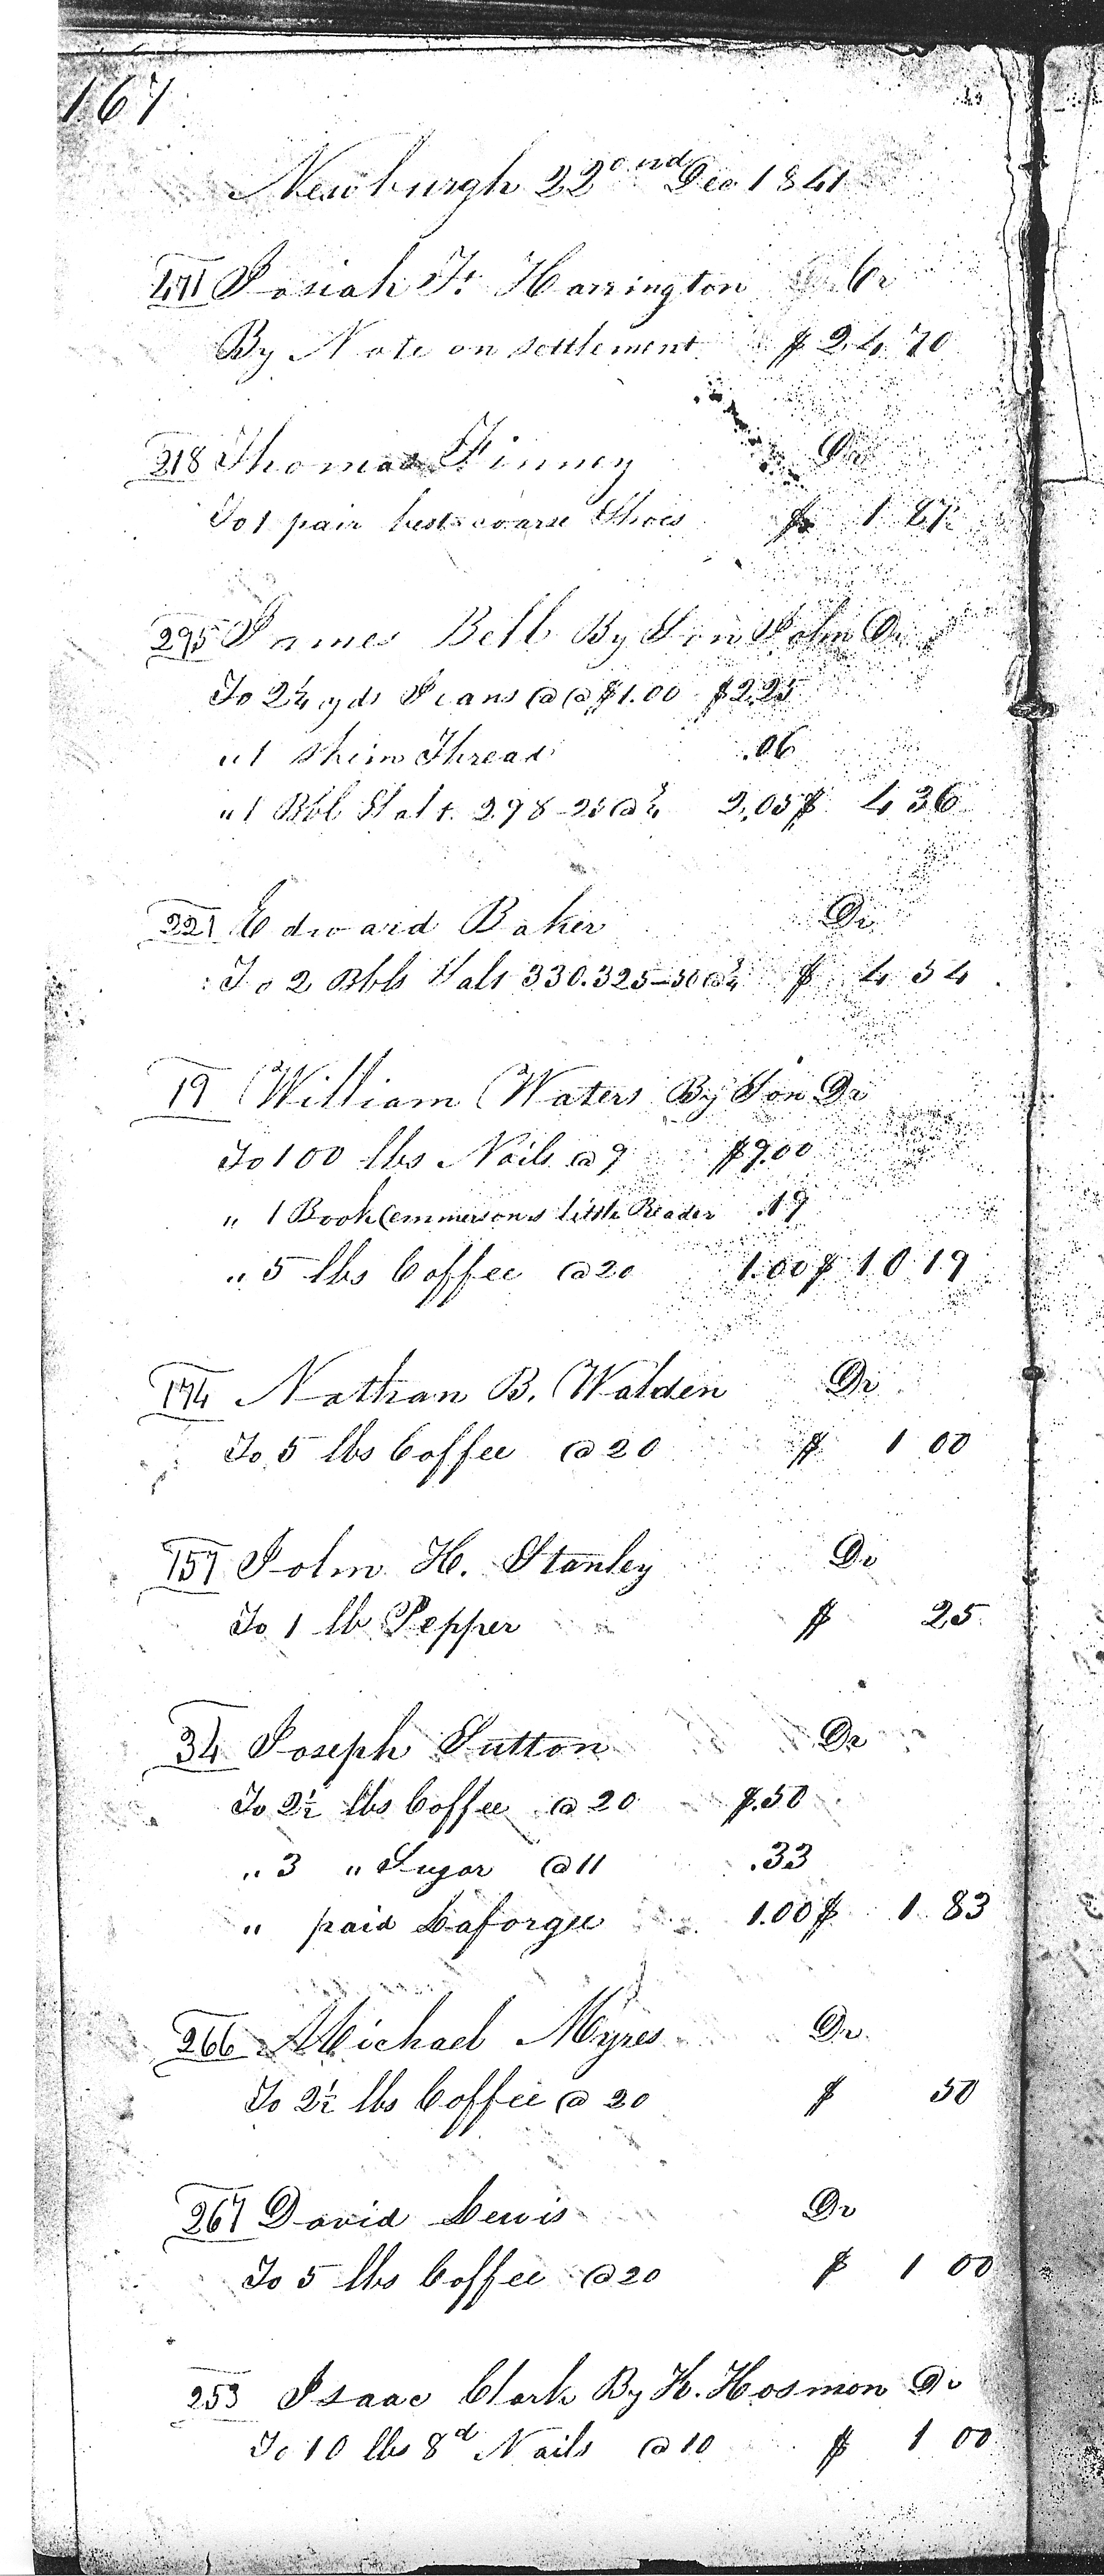 167
Newburgh 22nd Dec 1841
471 Josiah F. Harrington Cr
By Note on settlement $ 24 70
218 Thomas Finney Dr
To 1 pair best coarse Shoes $ 1 87
295 James Bell By Son John Dr
To 2¼ yds Jeans @ @ $1.00 $2.25
" 1 Skein Thread .06
" 1 Bbl Salt 298-25@¾ 2.05 $ 4 36
221 Edward Baker Dr
To 2 Bbls Salt 330.325-50@¾ $ 4 54
19 William Waters By Son Dr
To 100 lbs Nails @ 9 $9.00
" 1 Book (emmersons little Reader .19
" 5 lbs Coffee @ 20 1.00 $ 10 19
174 Nathan B. Walden Dr
To 5 lbs Coffee @ 20 $ 1 00
157 John H. Stanley Dr
To 1 lb Pepper $ 25
34 Joseph Sutton Dr
To 2½ lbs Coffee @ 20 $.50
" 3 " Sugar @ 11 .33
" paid Laforgee 1.00 $ 1 83
266 Michael Myres Dr
To 2½ lbs Coffee @ 20 $ 50
267 David Lewis Dr
To 5 lbs Coffee @ 20 $ 1 00
253 Isaac Clark By H. Hosmon Dr
To 10 lbs 8d Nails @ 10 $ 1 00